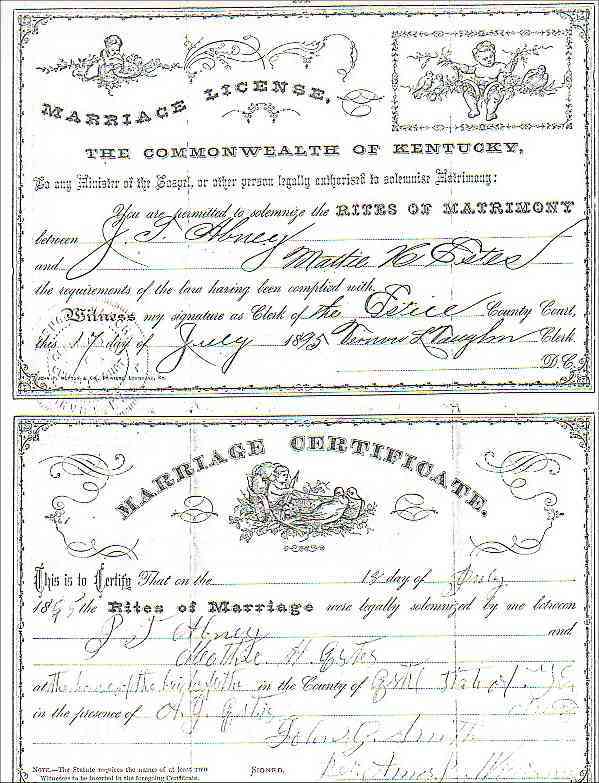 MARRIAGE LICENSE,
THE COMMONWEALTH OF KENTUCKY,
To any Minister of the Gospel, or other person legally authorised to solemnise Matrimony:
You are permitted to solemnize the RITES OF MATRIMONY
between J. T. Abney
and Mattie H Estes
the requirements of the law having been complied with.
Witness my signature as Clerk of the Estill County Court,
this 17 day of July 1895 Vernon L Vaughn Clerk
D.C.
MARRIAGE CERTIFICATE.
This is to Certify That on the 18 day of July
1895 the Rites of Marriage were legally solemnized by me between
J T Abney and
Mattie H Estes
at the house of the in the County of Estill State of Ky
in the presence of
John G. Smith
NOTE.—The Statute requires the names of at least two
Witnesses to be inserted in the foregoing Certificate.
SIGNED,